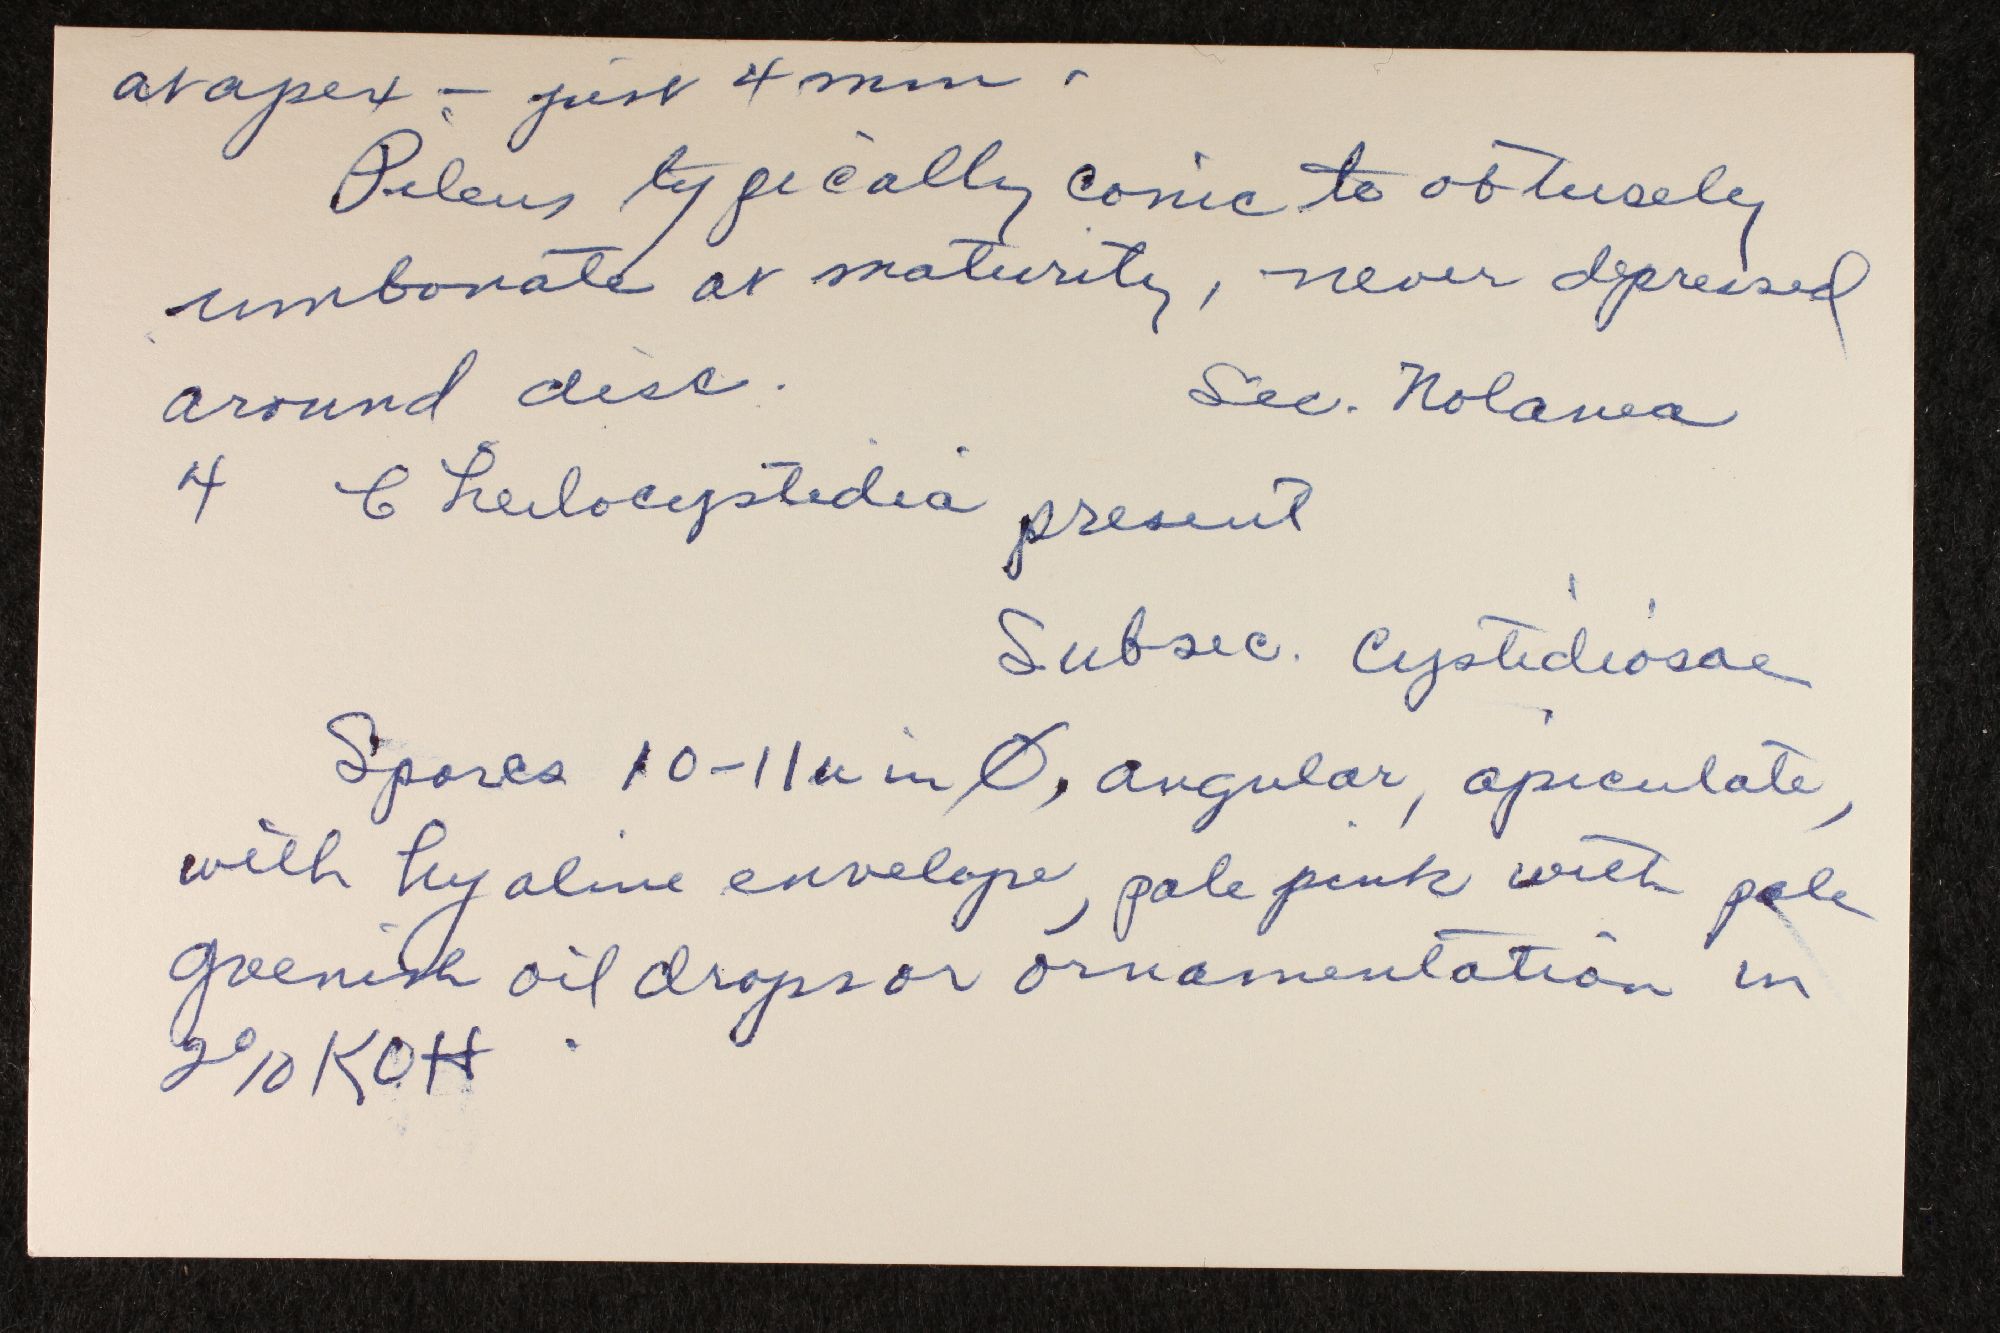 at apex - just 4 mm.
Pileus typically conic to obtusely
umbonate at maturity, never depressed
around disc. Sec. Nolanea
4 Cheilocystidia present
Subsec. Cystidiosae
Spores 10-11u in Ø, angular, apiculate,
with hyaline envelope, pale pink with pale
greenish oil drops or ornamentation in
2% KOH.